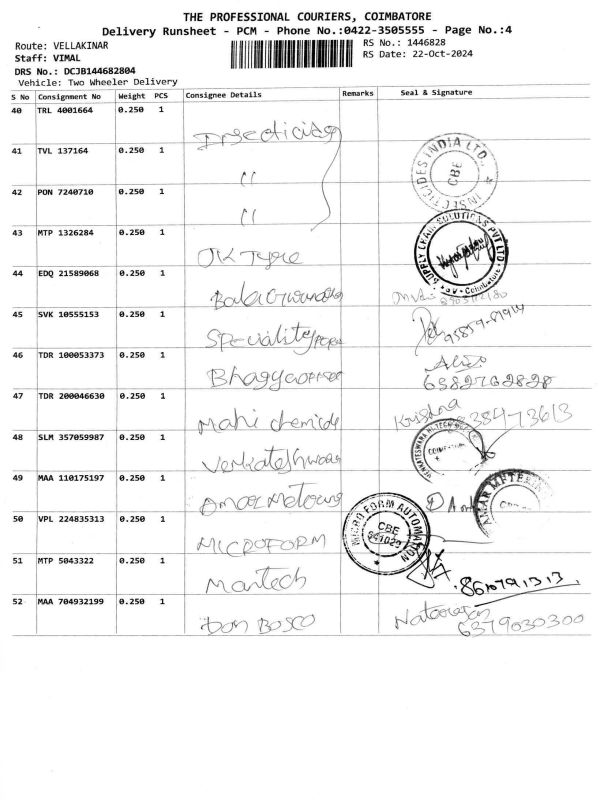 THE PROFESSIONAL COURIERS, COIMBATORE
Delivery Runsheet - PCM - Phone No.:0422-3505555 - Page No.:4
Route: VELLAKINAR
RS No.: 1446828
Staff: VIMAL
RS Date: 22-Oct-2024
DRS No.: DCJB144682804
Vehicle: Two Wheeler Delivery
S No Consignment No Weight PCS Consignee Details Remarks Seal & Signature
40 TRL 4001664 0.250 1 Insecticides
41 TVL 137164 0.250 1 " INSECTICIDES INDIA LTD., CBE
42 PON 7240710 0.250 1 "
43 MTP 1326284 0.250 1 JK Tyre SUPPLY CHAIN SOLUTIONS PVT LTD Coimbatore
44 EDQ 21589068 0.250 1
45 SVK 10555153 0.250 1 Speciality
46 TDR 100053373 0.250 1 Bhagya 6382762828
47 TDR 200046630 0.250 1 Mahi chemicals Krishna
48 SLM 357059987 0.250 1 Venkateshwara
49 MAA 110175197 0.250 1 Amar
50 VPL 224835313 0.250 1 MICROFORM MICRO FORM AUTOMATION CBE
51 MTP 5043322 0.250 1 Mantech
52 MAA 704932199 0.250 1 Don Bosco Natarajan
6379030300